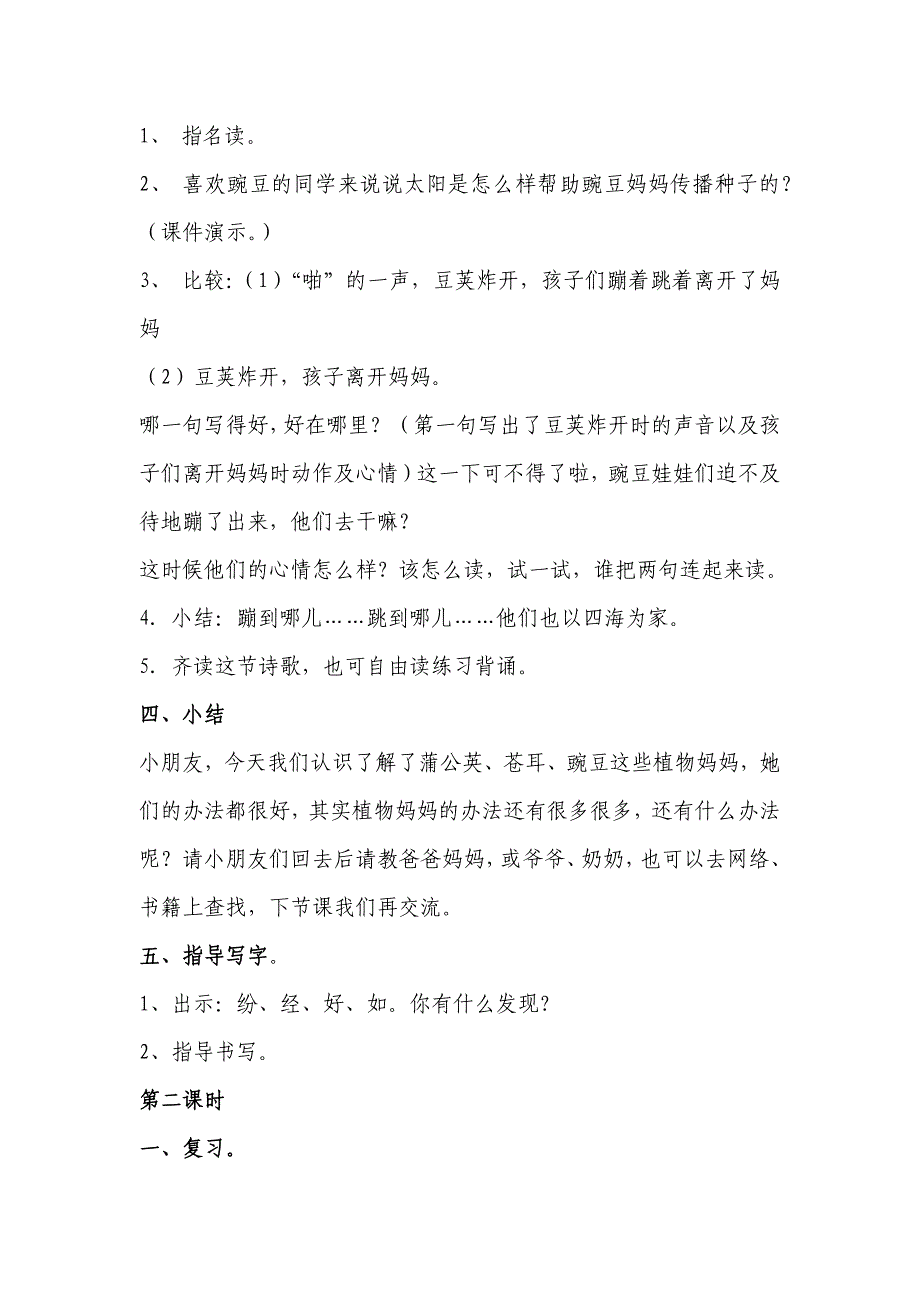 1、 指名读。
2、 喜欢豌豆的同学来说说太阳是怎么样帮助豌豆妈妈传播种子的？
（课件演示。）
3、 比较：（1）“啪”的一声，豆荚炸开，孩子们蹦着跳着离开了妈
妈
（2）豆荚炸开，孩子离开妈妈。
哪一句写得好，好在哪里？（第一句写出了豆荚炸开时的声音以及孩
子们离开妈妈时动作及心情）这一下可不得了啦，豌豆娃娃们迫不及
待地蹦了出来，他们去干嘛？
这时候他们的心情怎么样？该怎么读，试一试，谁把两句连起来读。
4．小结：蹦到哪儿……跳到哪儿……他们也以四海为家。
5．齐读这节诗歌，也可自由读练习背诵。
四、小结
小朋友，今天我们认识了解了蒲公英、苍耳、豌豆这些植物妈妈，她
们的办法都很好，其实植物妈妈的办法还有很多很多，还有什么办法
呢？请小朋友们回去后请教爸爸妈妈，或爷爷、奶奶，也可以去网络、
书籍上查找，下节课我们再交流。
五、指导写字。
1、出示：纷、经、好、如。你有什么发现？
2、指导书写。
第二课时
一、复习。